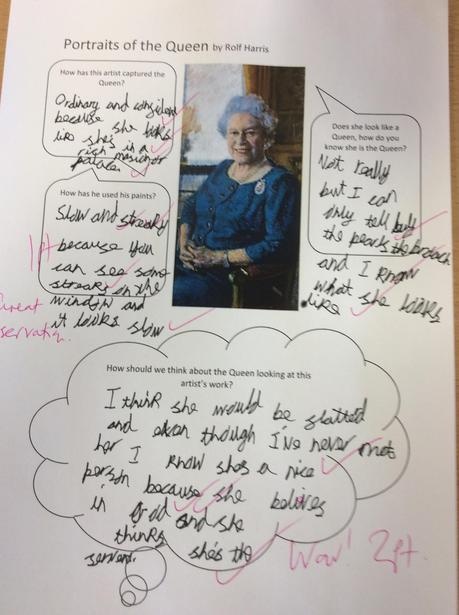 Portraits of the Queen by Rolf Harris
How has this artist captured the
Queen?
Ordinary and
because she looks
like she's in a
rich mansion or
palace.
How has he used his paints?
Slow and streaky
because you
can see some
streaks on the
window and
it looks slow
1pt
Great
observation.
Does she look like a
Queen, how do you
know she is the Queen?
Not really
but I can
only tell by
the pearls the brooch
and I know
what she looks
like
How should we think about the Queen looking at this
artist's work?
I think she would be
and even though I've never met
her I know shes a nice
person because she belives
in god and she
thinks she's the
servent.
Wow! 2pt.